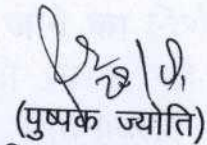 (पुष्पक ज्योति)